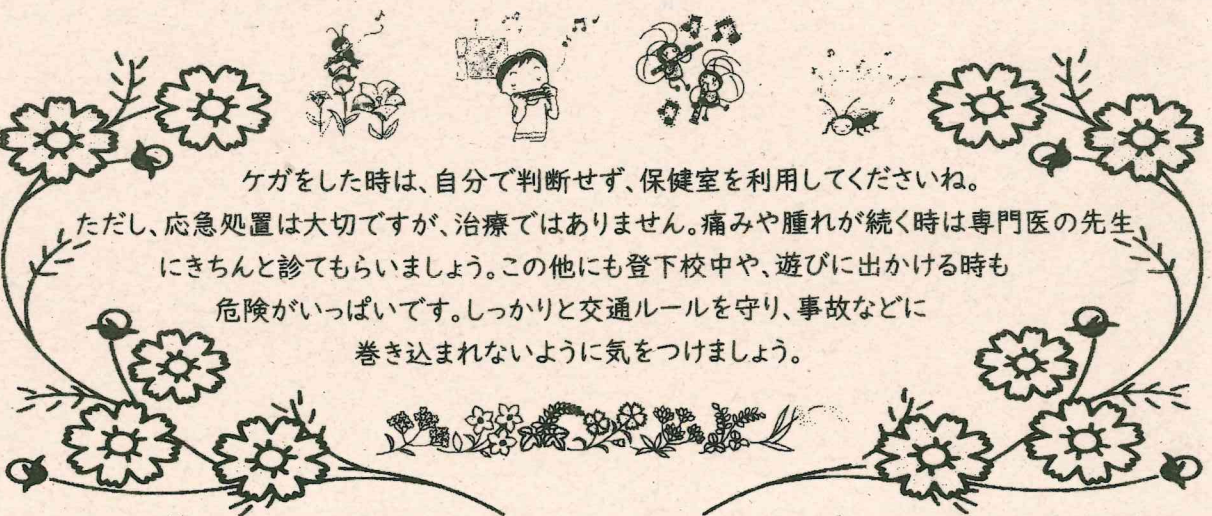 ケガをした時は、自分で判断せず、保健室を利用してくださいね。
ただし、応急処置は大切ですが、治療ではありません。痛みや腫れが続く時は専門医の先生
にきちんと診てもらいましょう。この他にも登下校中や、遊びに出かける時も
危険がいっぱいです。しっかりと交通ルールを守り、事故などに
巻き込まれないように気をつけましょう。